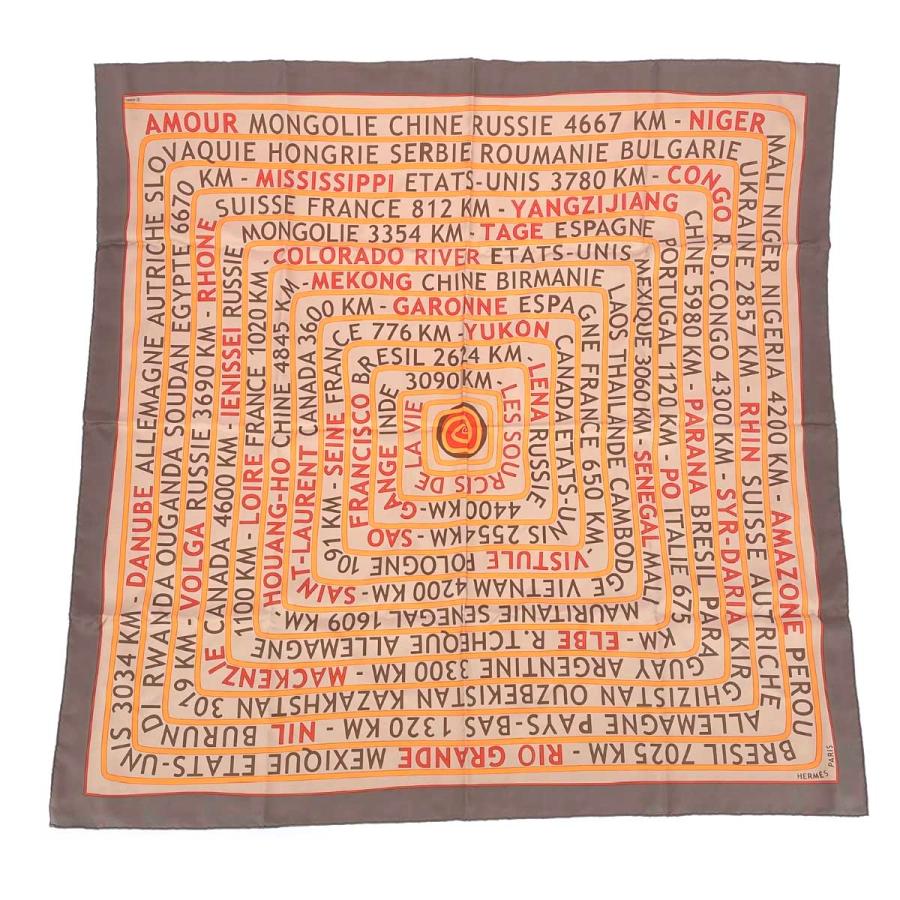 AMOUR MONGOLIE CHINE RUSSIE 4667 KM - NIGER
MALI NIGER NIGERIA 4200 KM - AMAZONE PEROU
BRESIL 7025 KM - RIO GRANDE MEXIQUE ETATS-UN
IS 3034 KM - DANUBE ALLEMAGNE AUTRICHE SLO
VAQUIE HONGRIE SERBIE ROUMANIE BULGARIE
UKRAINE 2857 KM - RHIN SUISSE AUTRICHE
ALLEMAGNE PAYS-BAS 1320 KM - NIL BURUN
DI RWANDA OUGANDA SOUDAN EGYPTE 6670
KM - MISSISSIPPI ETATS-UNIS 3780 KM - CONGO
R.D. CONGO 4300 KM - SYR-DARIA KIR
GHIZISTAN OUZBEKISTAN KAZAKHSTAN 307
9 KM - VOLGA RUSSIE 3690 KM - RHONE
SUISSE FRANCE 812 KM - YANGZIJIANG
CHINE 5980 KM - PARANA BRESIL PARA
GUAY ARGENTINE 3300 KM - MACKENZIE
CANADA 4600 KM - IENISSEI RUSSIE
MONGOLIE 3354 KM - TAGE ESPAGNE
PORTUGAL 1120 KM - PO ITALIE 675
KM - ELBE R.TCHEQUE ALLEMAGNE
1100 KM - LOIRE FRANCE 1020 KM
- COLORADO RIVER ETATS-UNIS
MEXIQUE 3060 KM - SENEGAL MALI
MAURITANIE SENEGAL 1609 KM -
HOUANG-HO CHINE 4845 KM
- MEKONG CHINE BIRMANIE
LAOS THAILANDE CAMBODGE
VIETNAM 4200 KM -
SAINT-LAURENT CANADA 3600 KM
- GARONNE ESPA
GNE FRANCE 650 KM -
VISTULE POLOGNE 10
91 KM - SEINE FRANCE
776 KM - YUKON
CANADA ETATS-UN
IS 2554 KM - SAO
FRANCISCO BR
ESIL 2624 KM -
LENA RUSSIE
4400 KM -
GANGE INDE
3090 KM -
LES SOURCIS DE LA VIE
HERMES PARIS